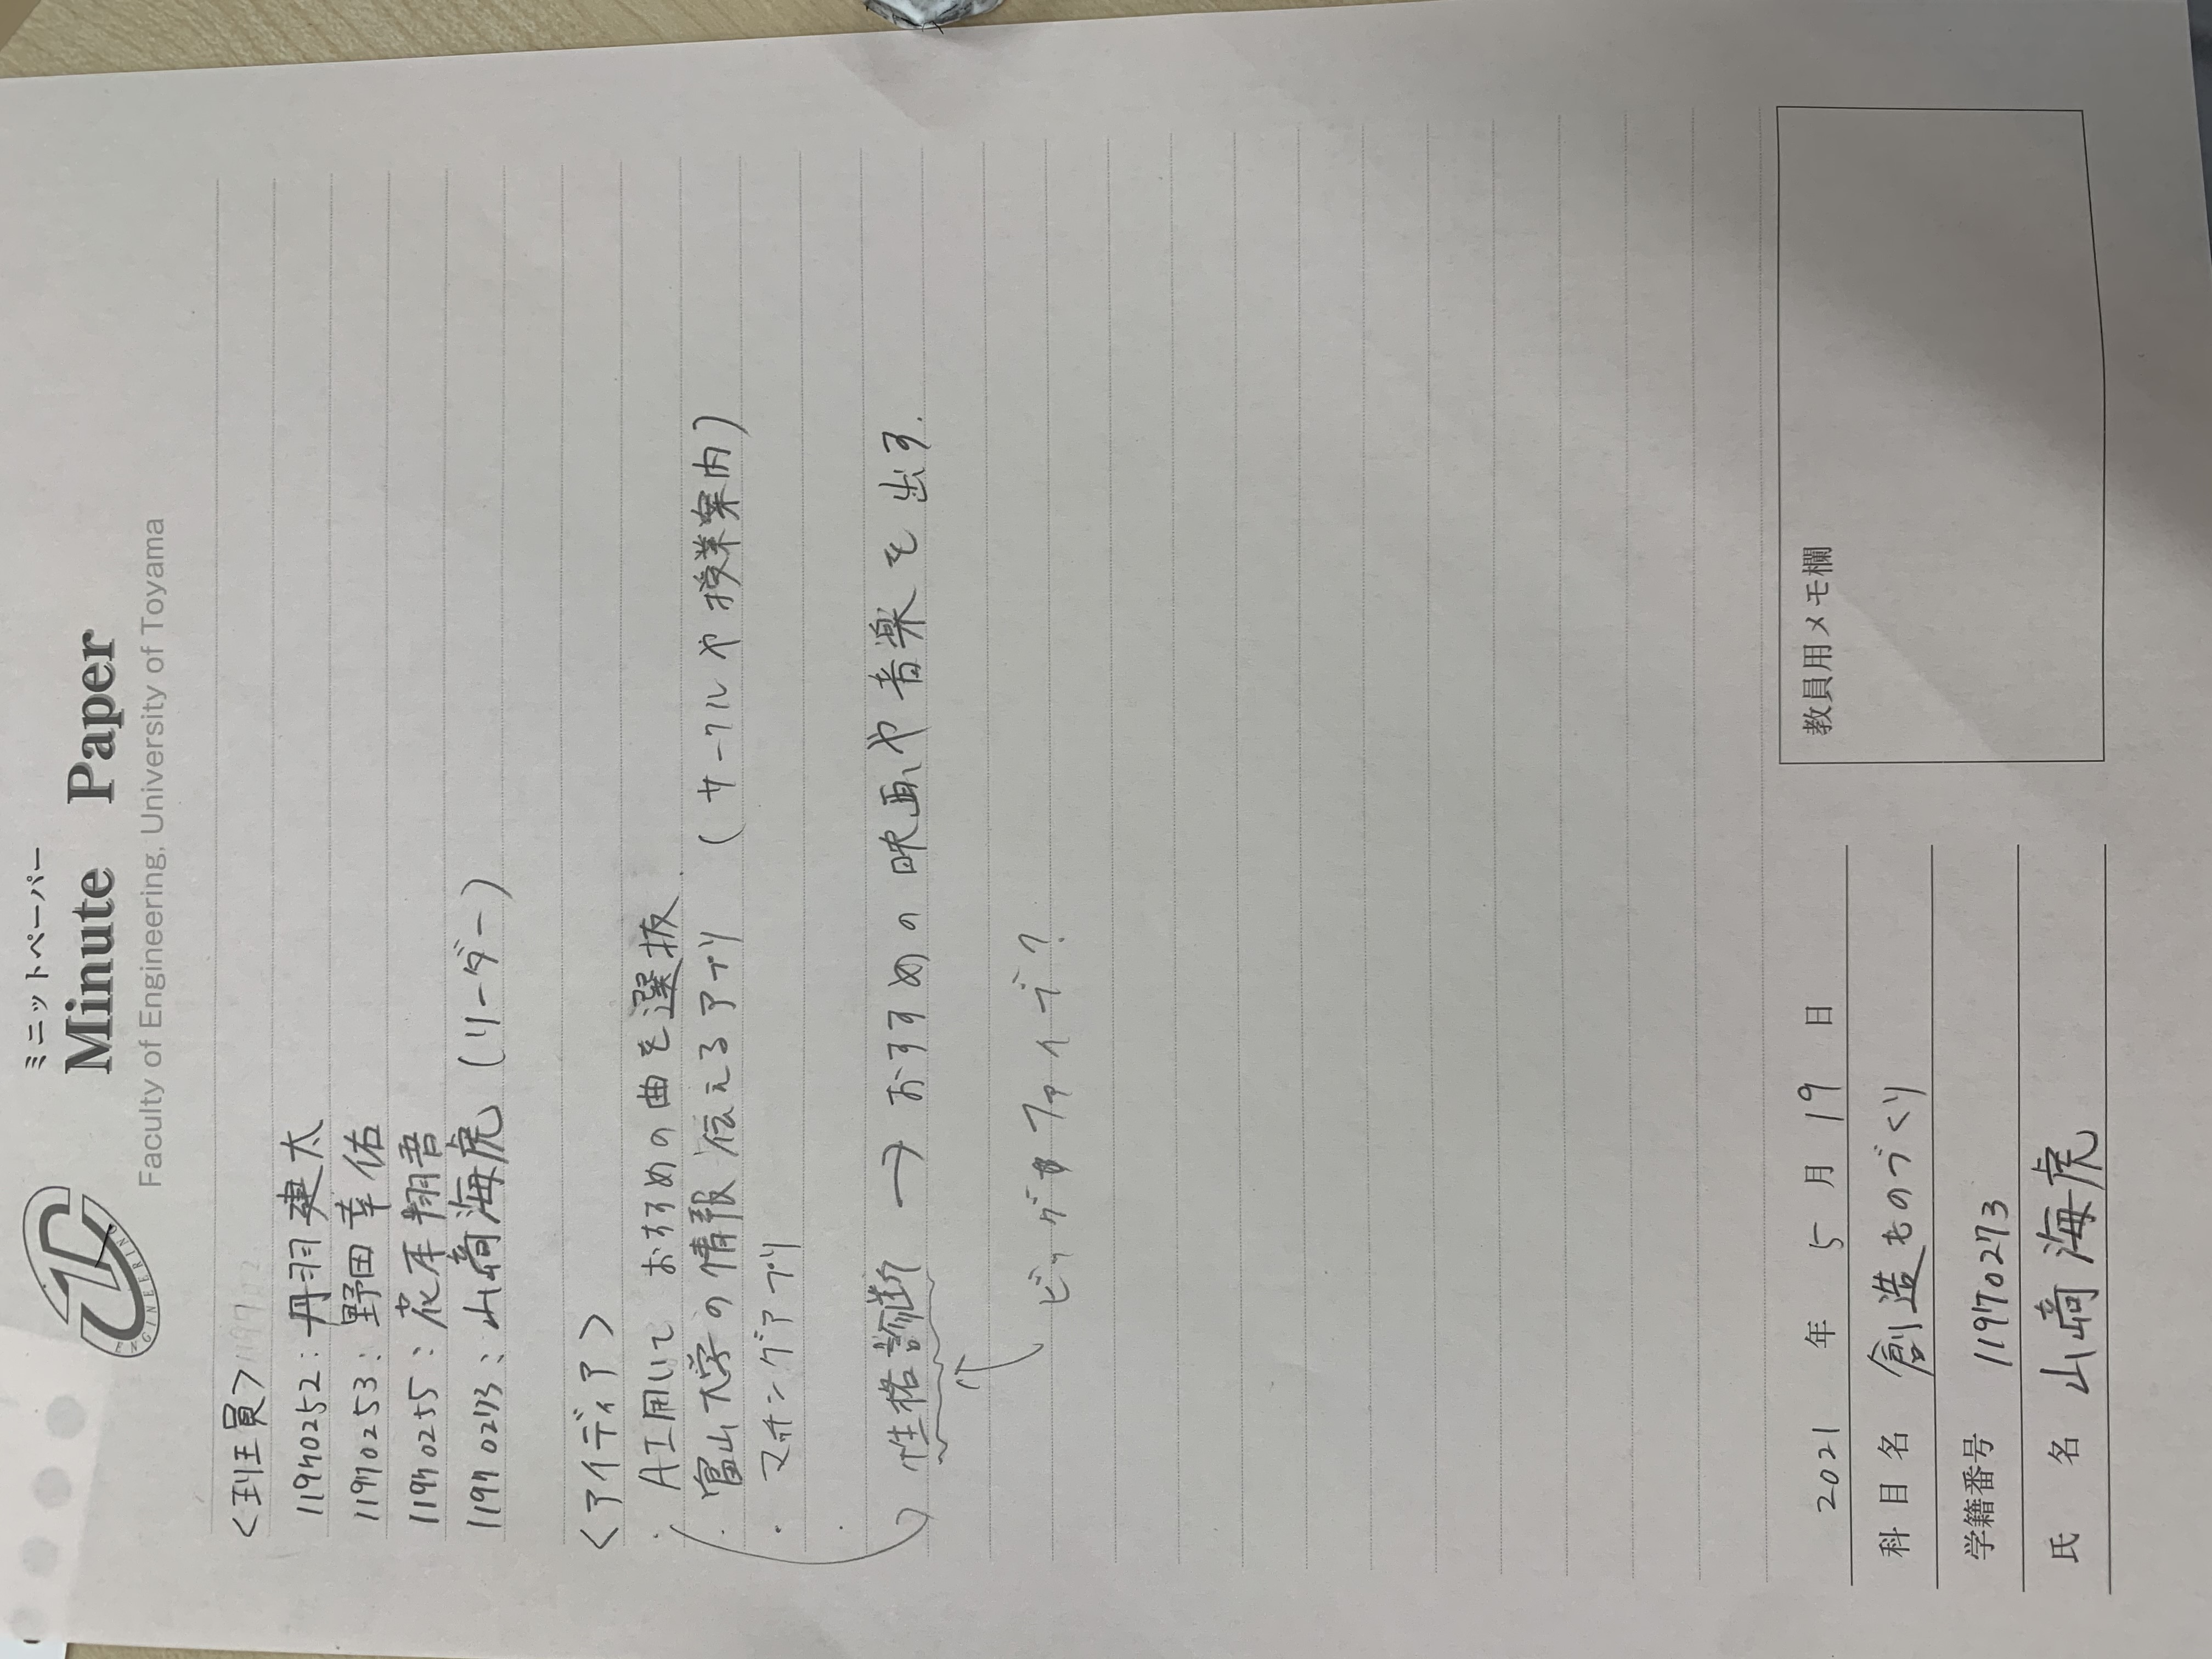 ミニットペーパー
Minute Paper
ENGINEERING
Faculty of Engineering, University of Toyama
<班員>
11970252:丹羽建太
11970253:野田幸佑
11970255:花本翔吾
11970273:山﨑海虎(リーダー)
<アイディア>
・AI用いて おすすめの曲を選抜.
・富山大学の情報伝えるアプリ (サークルや授業案内)
・マッチングアプリ
・
性格診断 → おすすめの映画や音楽を出す.
ビッグファイブ?
2021 年 5 月 19 日
科目名 創造ものづくり
学籍番号 11970273
氏 名 山﨑海虎
教員用メモ欄